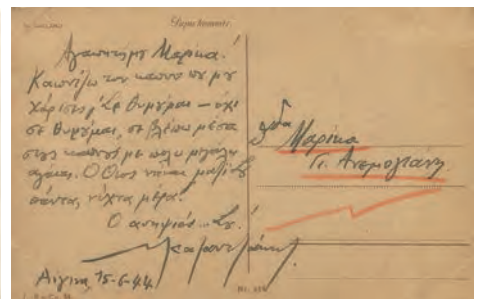 Αγαπητή μου Μαρίκα!
Καπνίζω τον καπνό που μου
χάρισες, Σε θυμούμαι – όχι
σε θυμούμαι, σε βλέπω μέσα
στους καπνούς με πολύ μεγάλη
αγάπη. Ο Θεός νάναι μαζί Σου
πάντα, νύχτα μέρα!
Ο ανηψιός
Αίγινα, 15-6-44
δδα Μαρίκα
Γ. Ανεμογιάννη